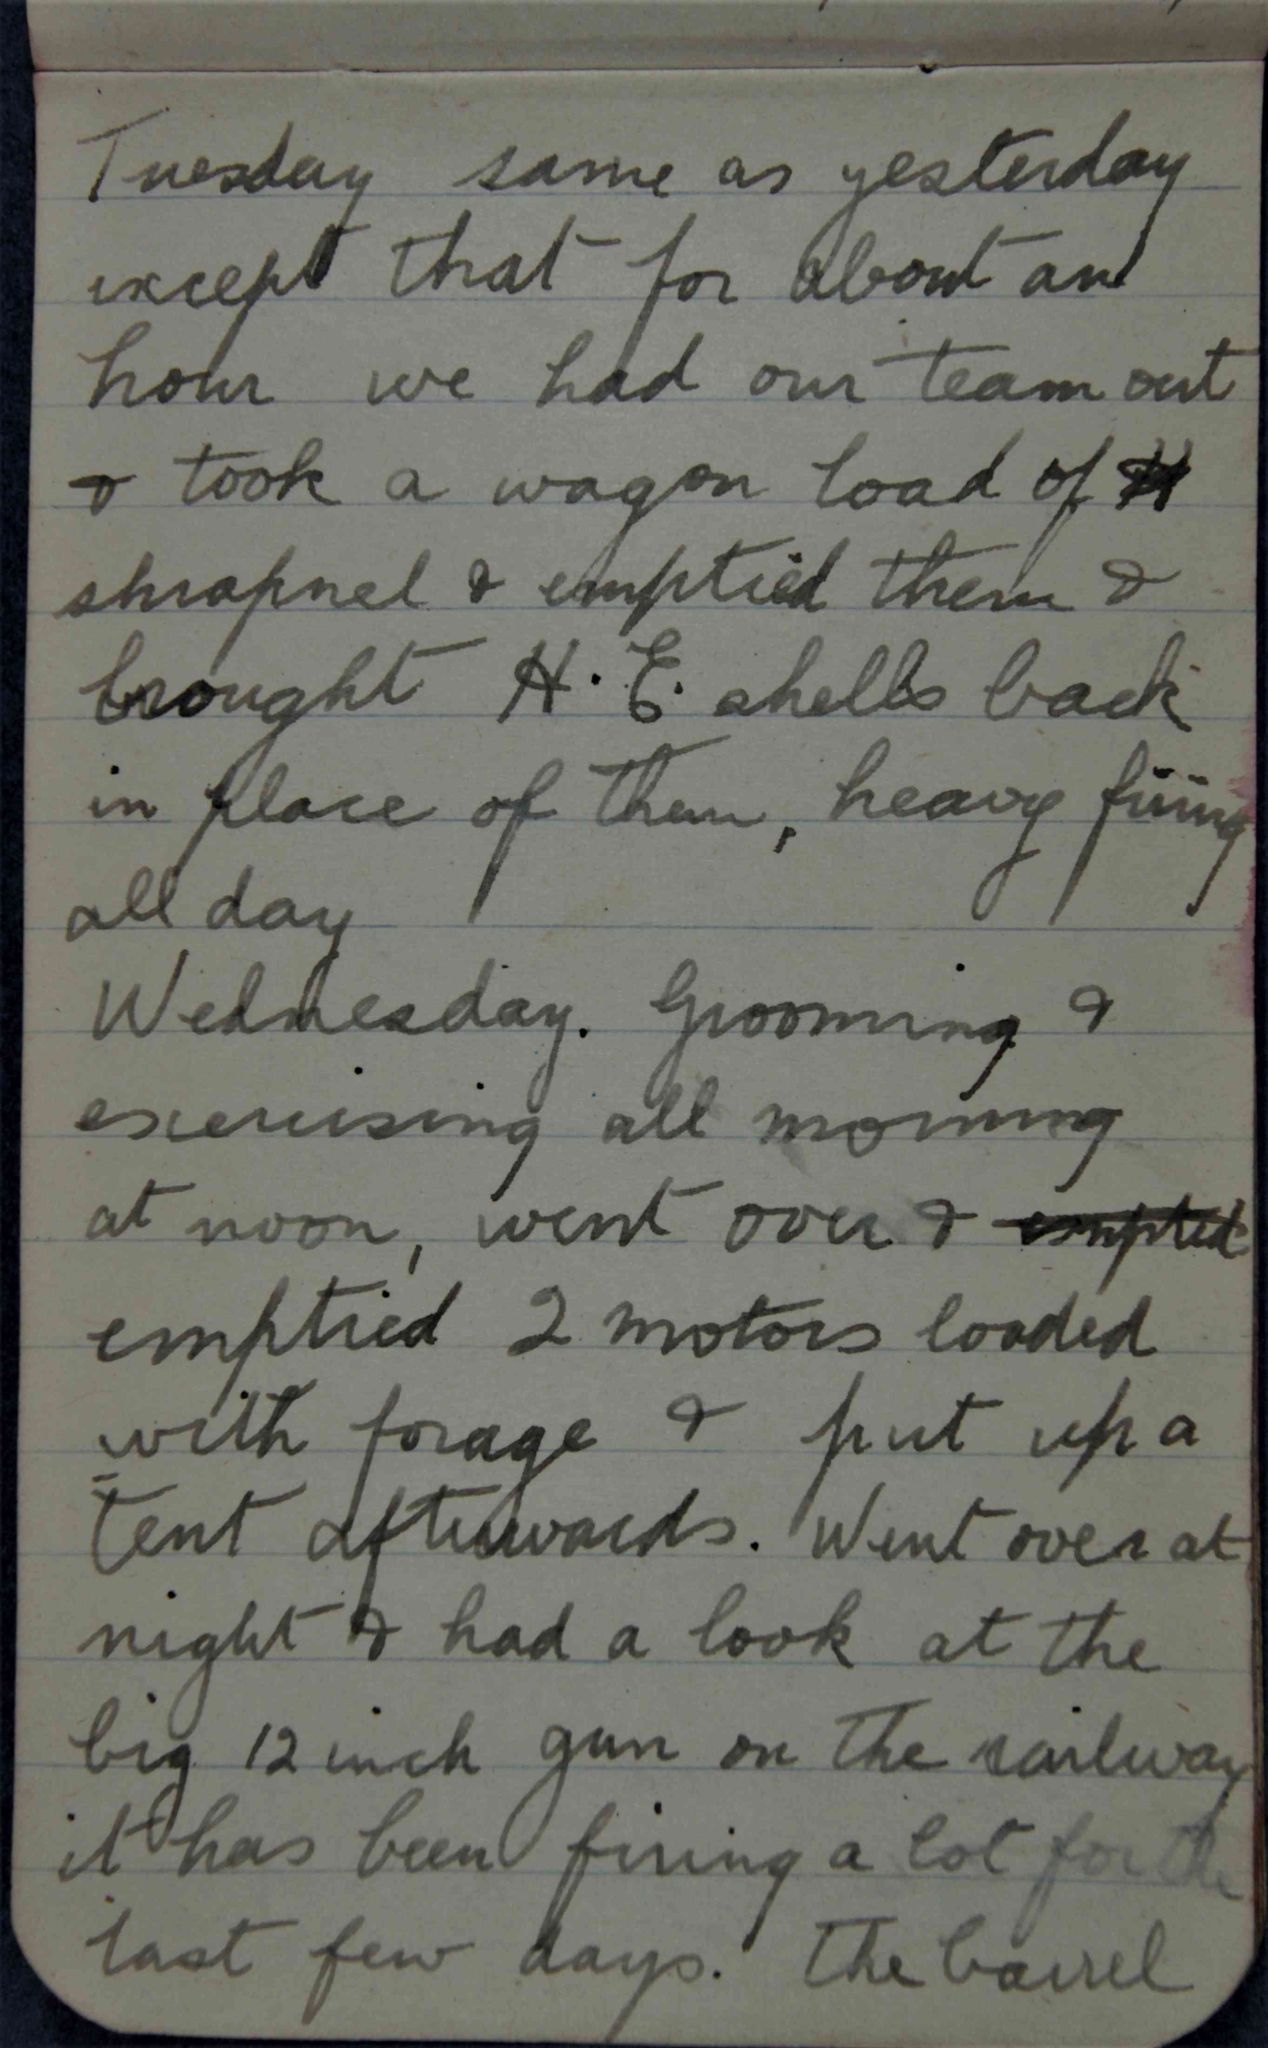 Tuesday same as yesterday
except that for about an
hour we had our team out
& took a wagon load of
shrapnel & emptied them &
brought H. E. shells back
in place of them, heavy firing
all day
Wednesday. Grooming &
exercising all morning
at noon, went over & emptied
emptied 2 motors loaded
with forage & put up a
tent afterwards. Went over at
night & had a look at the
big 12 inch gun on the railway
it has been firing a lot for the
last few days. The barrel